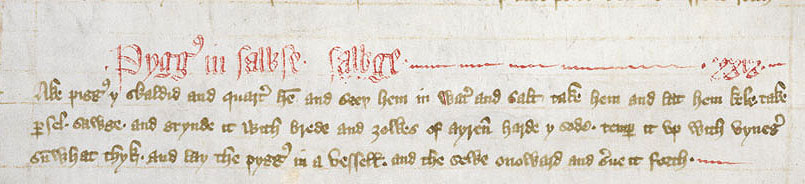 Pygg' in sawse. sawge. .xxix.
Ake pigg' y skaldid and quart' hē and seey hem in wat' and salt take hem and lat hem kele. take
ꝑsel. sawge. and grynde it with brede and zolkes of ayreñ harde y sode. temp̄ it up with vyneg'
sūwhat thyk. and lay the pygg' in a vessell. and the sewe onoward and s'ue it forth.